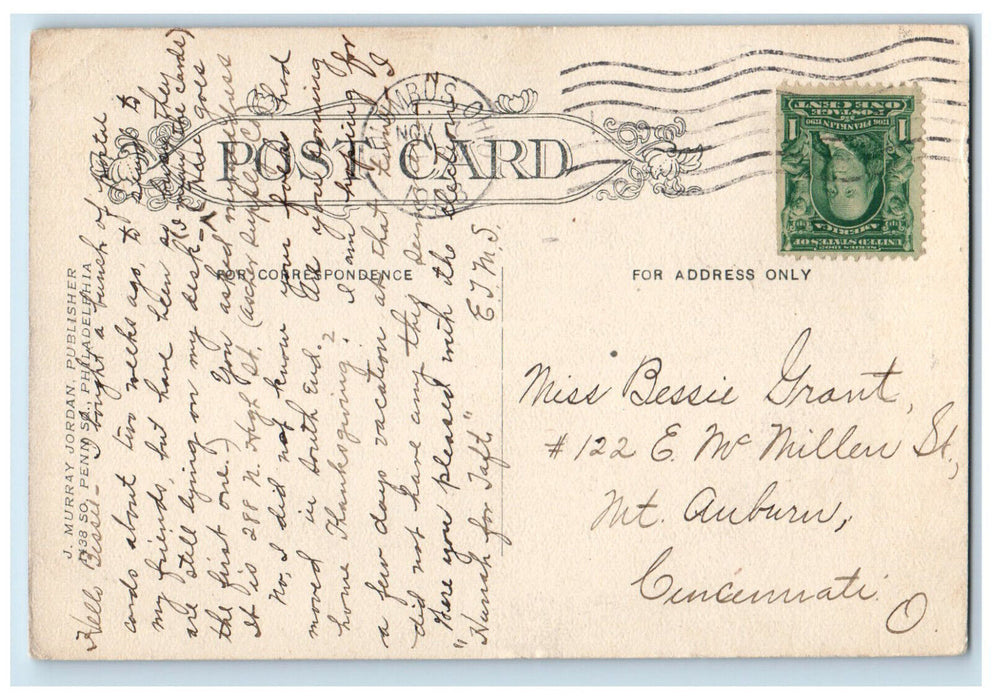 POST CARD
FOR CORRESPONDENCE
FOR ADDRESS ONLY
J. MURRAY JORDAN, PUBLISHER
1438 SO. PENN SQ., PHILADELPHIA
COLUMBUS, OHIO
NOV
UNITED STATES OF
AMERICA
FRANKLIN
1706 1790
POSTAGE
ONE CENT
1 1
Hello Bessie- I bought a bunch of Postal
cards about two weeks ago, to send to
my friends, but have been so busy they
are still lying on my desk (I mean the cards)
the first one.) You asked my address
Here goes
It is 288 N. High St. (as der Deptsch
No, I did not know your folks had
moved in South End. Are you coming
home Thanksgiving? I am hoping for
a few days vacation at that time I
did not have any this Summer.
"Were you pleased with the election?
"Hurrah for Taft." E J M S.
Miss Bessie Grant,
#122 E. McMillen St.,
Mt. Auburn,
Cincinnati.
O.